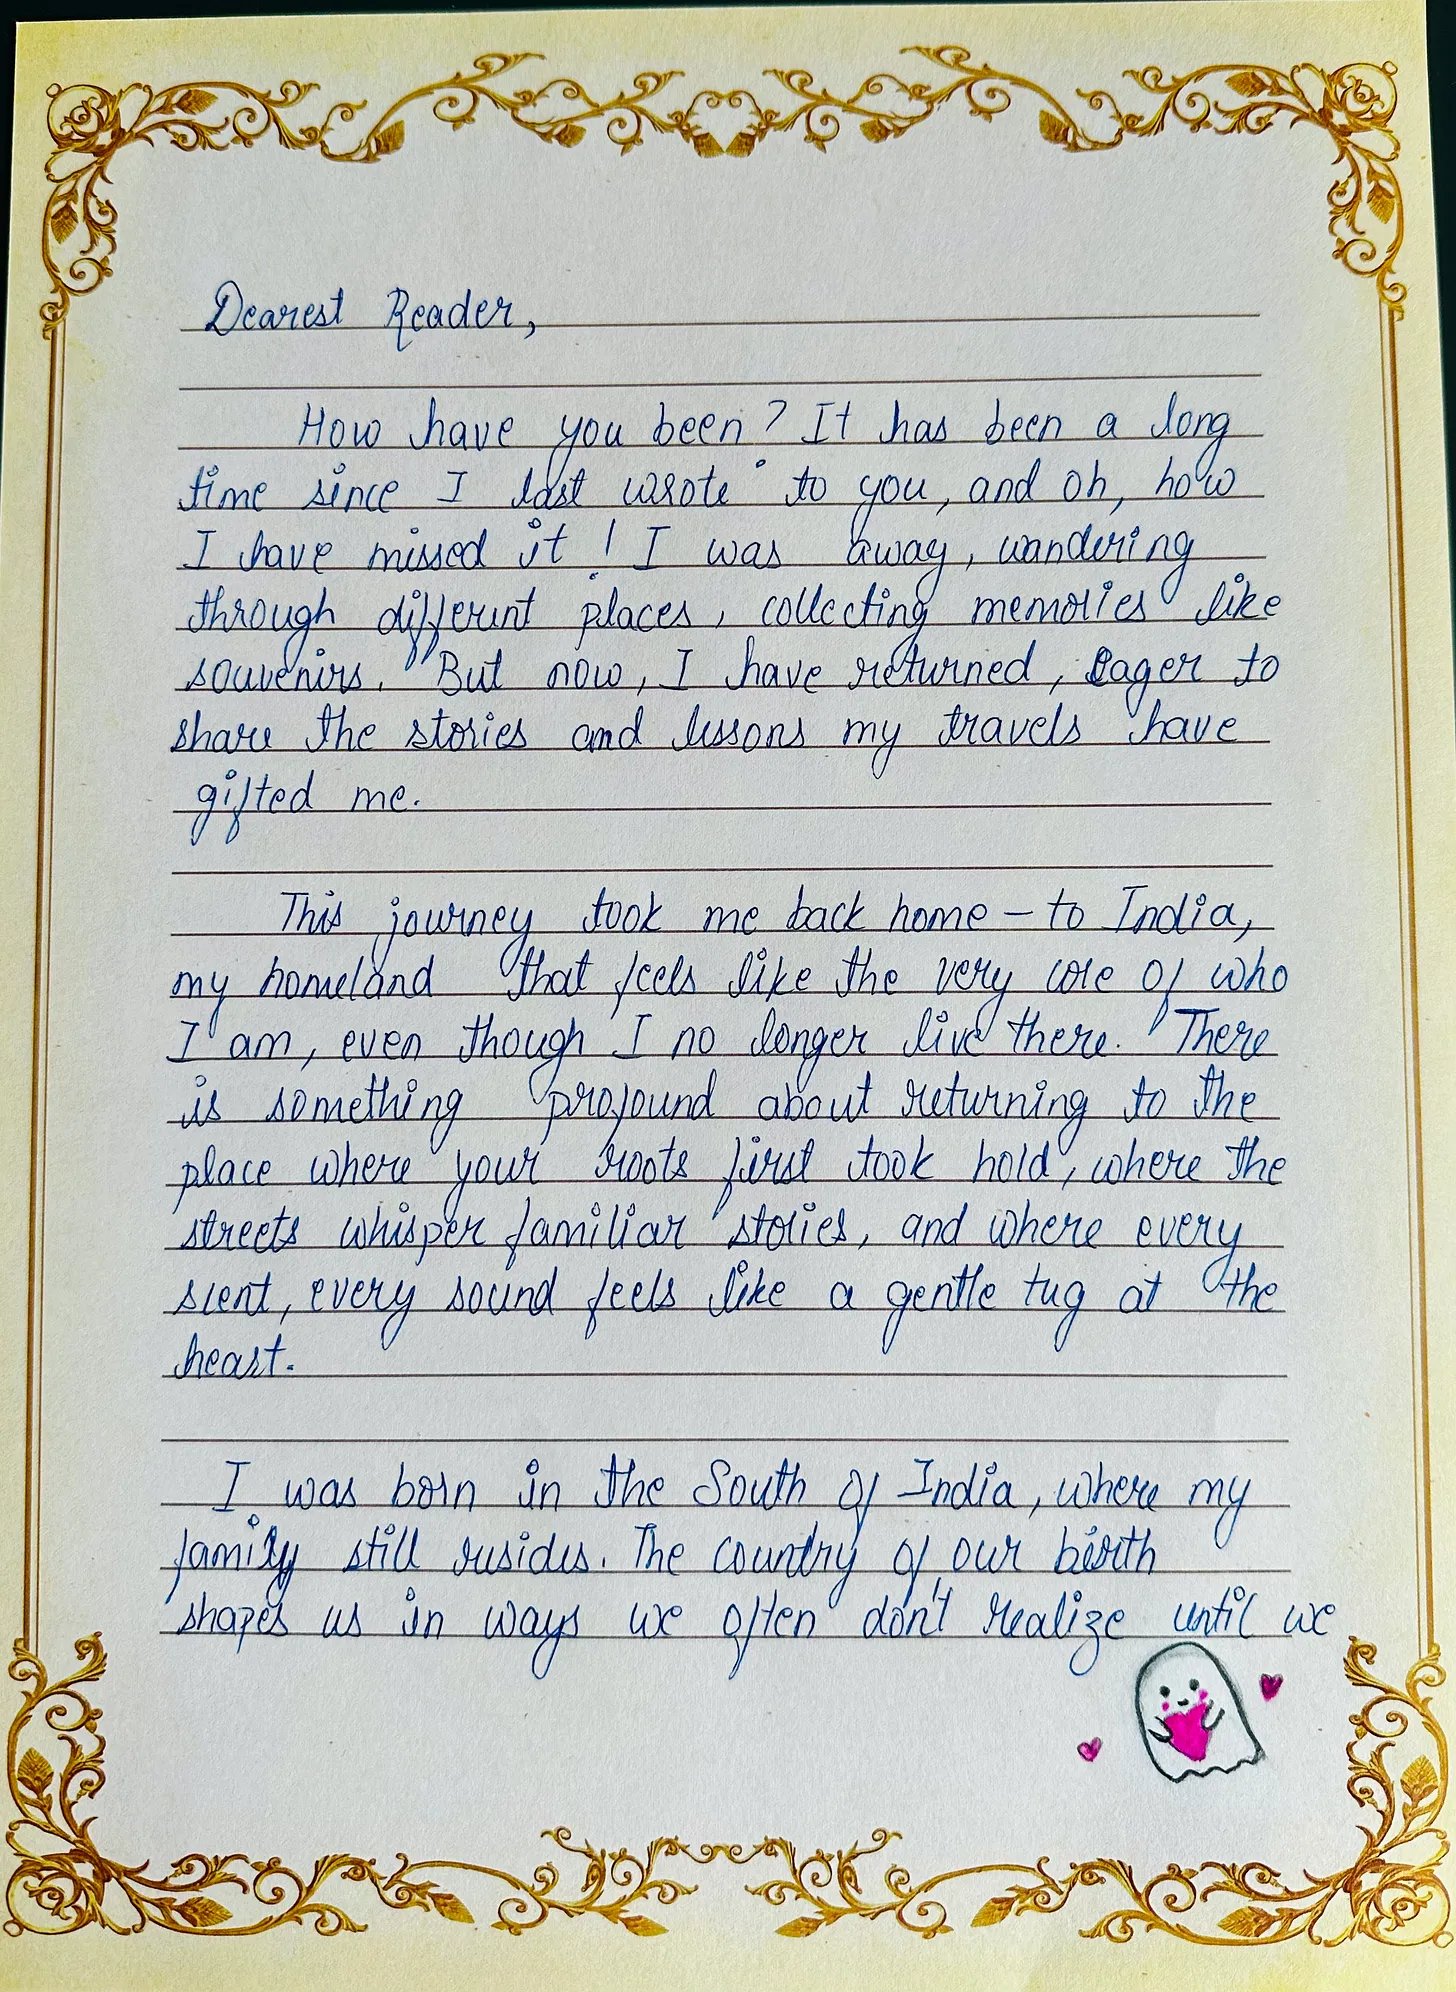 Dearest Reader,
How have you been? It has been a long
time since I last wrote to you, and oh, how
I have missed it! I was away, wandering
through different places, collecting memories like
souvenirs. But now, I have returned, eager to
share the stories and lessons my travels have
gifted me.
This journey took me back home – to India,
my homeland that feels like the very core of who
I am, even though I no longer live there. There
is something profound about returning to the
place where your roots first took hold, where the
streets whisper familiar stories, and where every
scent, every sound feels like a gentle tug at the
heart.
I was born in the South of India, where my
family still resides. The country of our birth
shapes us in ways we often don't realize until we